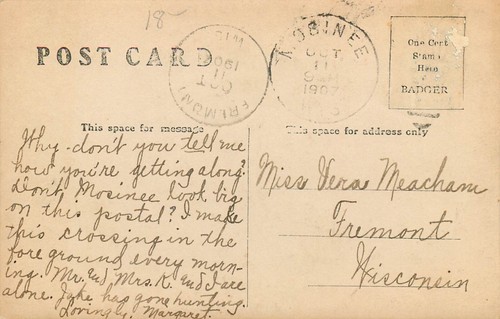 18
POST CARD
FREMONT
OCT
11
190
WIS
MOSINEE
OCT.
11
1907
WIS
One Cent
Stamp
Here
BADGER
This space for message
This space for address only
Why don't you tell me
how you're getting along?
Don't Mosinee look big
on this postal? I make
this crossing in the
fore ground every morn-
ing. Mr. Ed, Mrs. K. and I are
alone. Jake has gone hunting.
Lovingly, Margaret.
Miss Vera Meacham
Fremont
Wisconsin